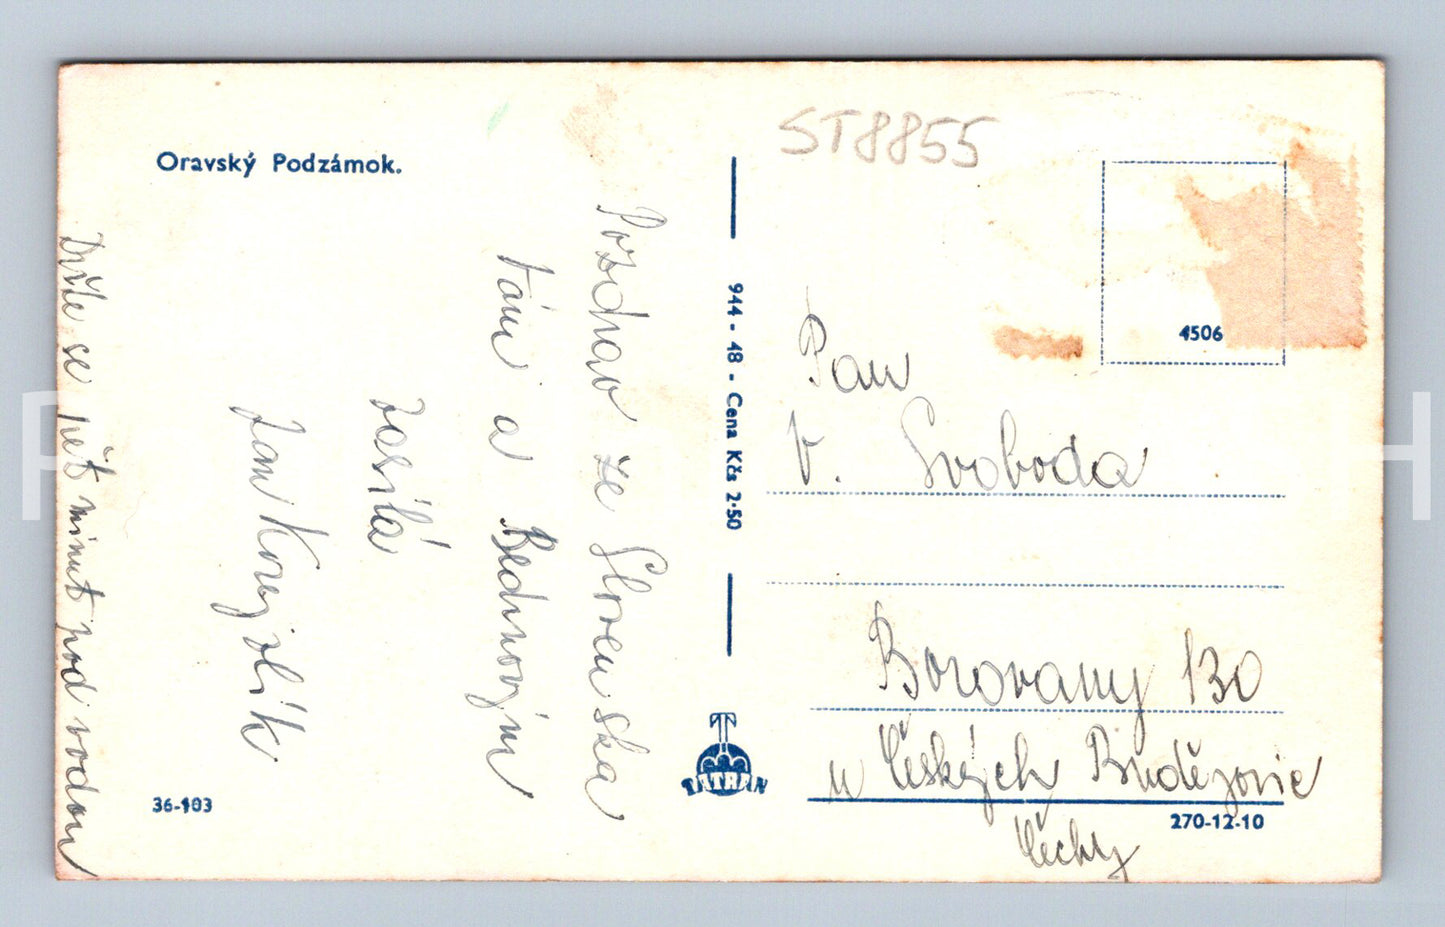 Oravský Podzámok.
ST8855
4506
Pozdrav ze Slovenska
Vám a Bednovým
zasílá
Jan
Držte se pět minut pod vodou
944 - 48 - Cena Kčs 2·50
TATRAN
Pan
V. Svoboda
Borovany 130
u Českých Budějovic
Čechy
36-103
270-12-10